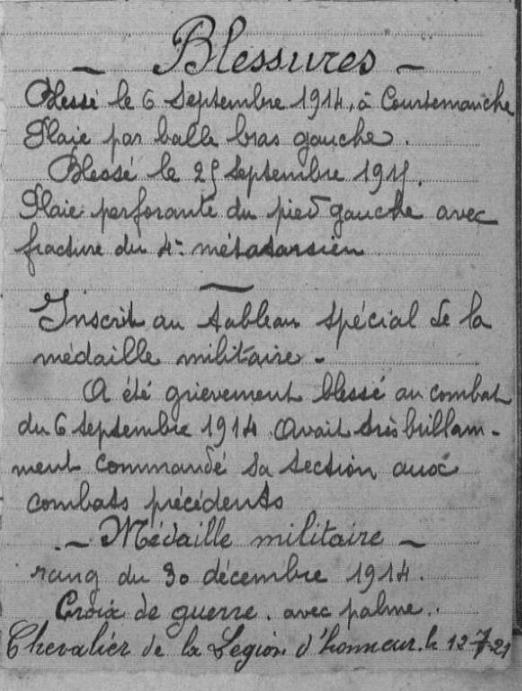 - Blessures -
Blessé le 6 Septembre 1914, à Courtemanche
Plaie par balle bras gauche.
Blessé le 25 Septembre 1915.
Plaie perforante du pied gauche avec
fracture du 4e métatarsien
Inscrit au tableau spécial de la
médaille militaire -
A été grievement blessé au combat
du 6 Septembre 1914. Avait très brillam-
ment commandé sa section aux
combats précédents
- Médaille militaire -
rang du 30 décembre 1914.
Croix de guerre. avec palme.
Chevalier de la Légion d'honneur. le 12-7-21